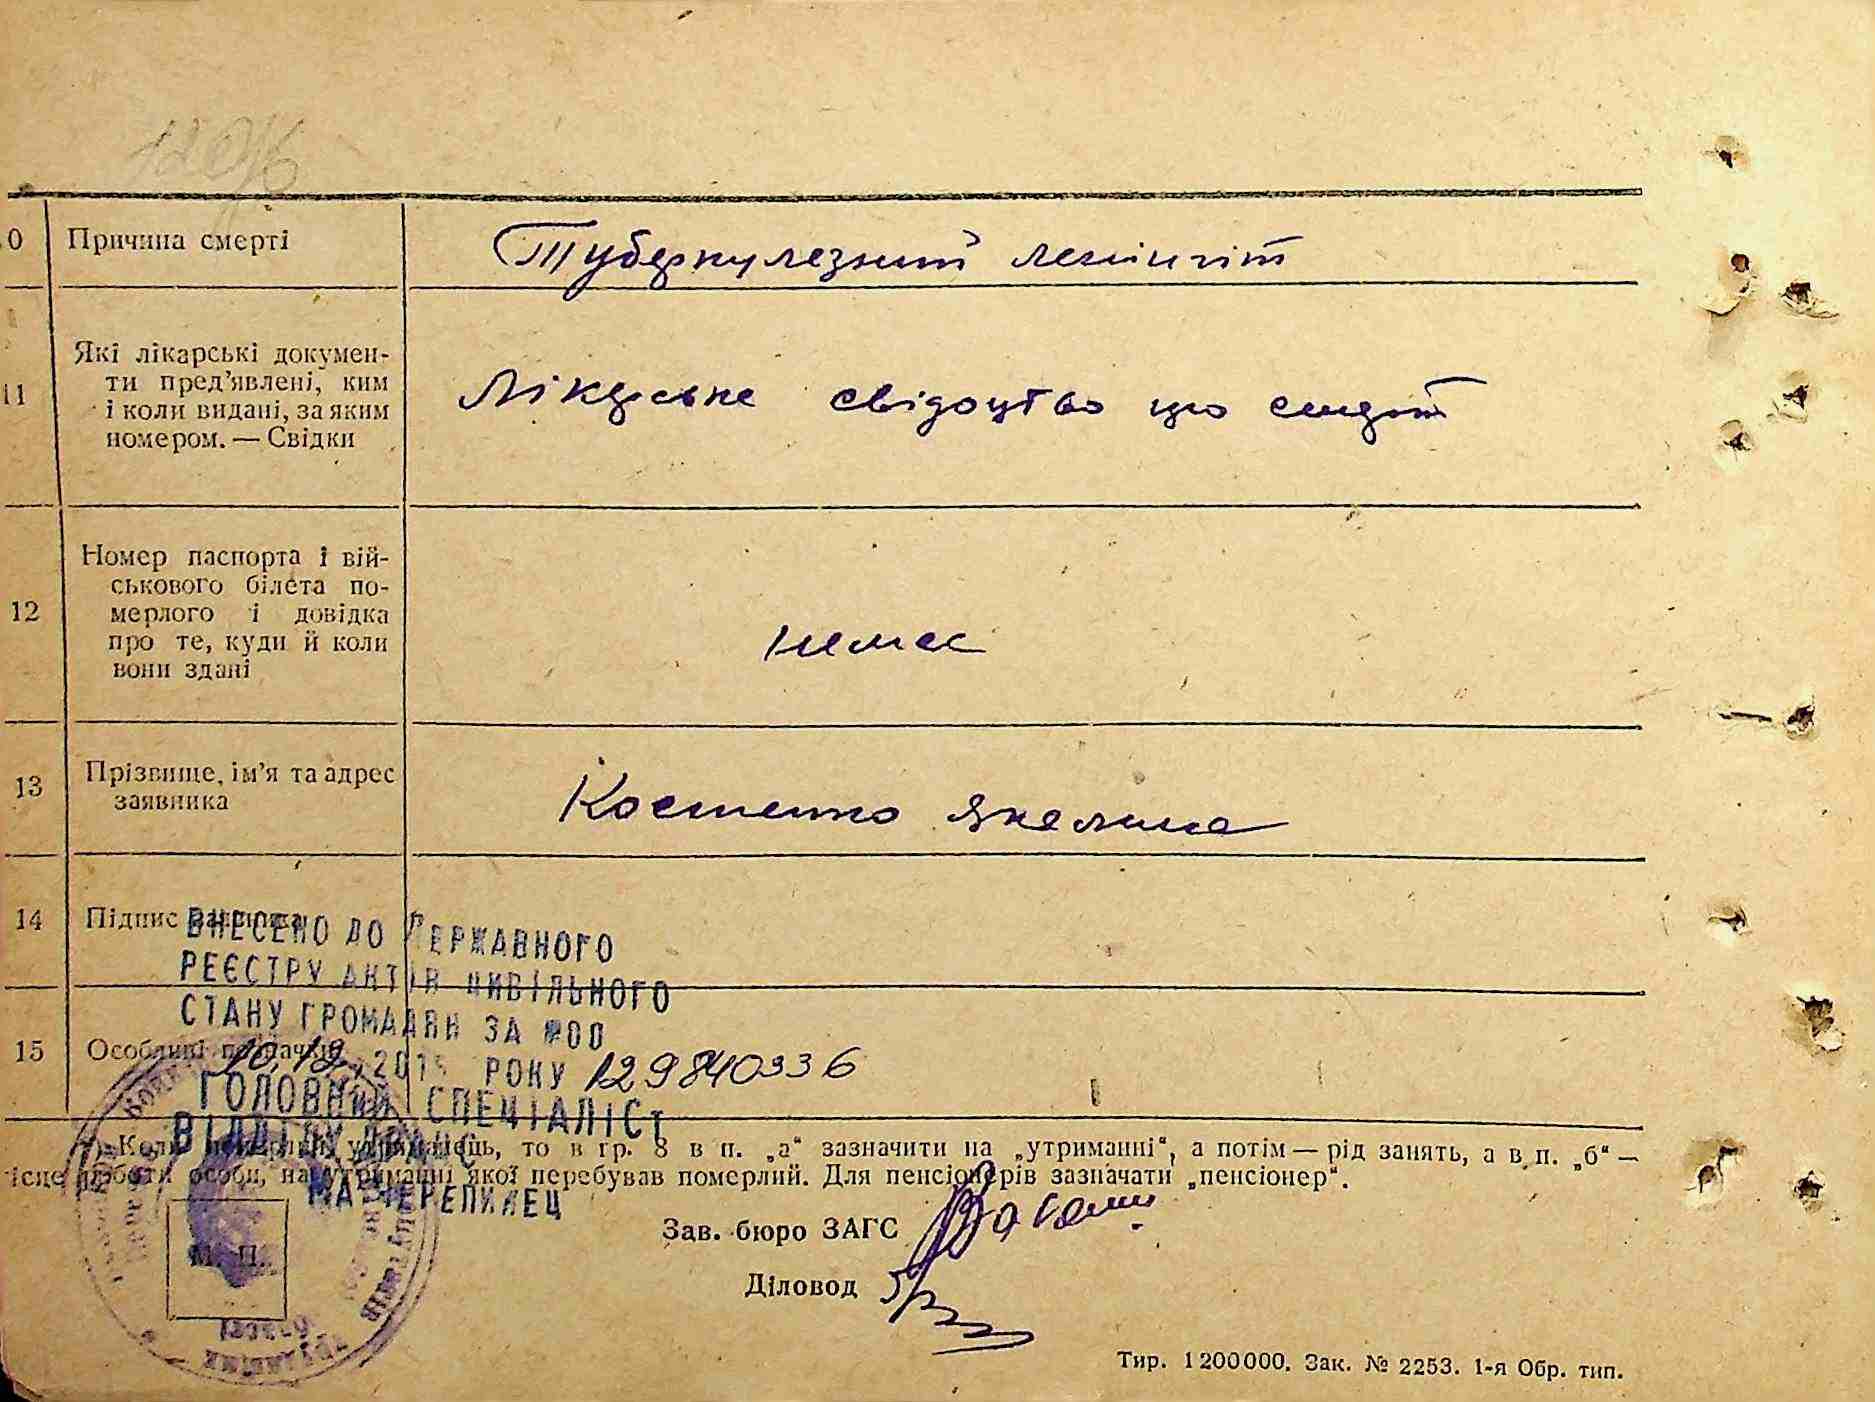 10 Причина смерті Туберкулезний менінгіт
11 Які лікарські докумен-
ти пред'явлені, ким
і коли видані, за яким
номером. — Свідки
Лікарське свідоцтво про смерть
12 Номер паспорта і вій-
ськового білета по-
мерлого і довідка
про те, куди й коли
вони здані
немає
13 Прізвище, ім'я та адрес
заявника
Костенко
14 Підпис заявника
ВНЕСЕНО ДО ДЕРЖАВНОГО
РЕЄСТРУ АКТІВ ЦИВІЛЬНОГО
СТАНУ ГРОМАДЯН ЗА №00
15 Особливі позначки
10.12. РОКУ 129840336
ГОЛОВНИЙ СПЕЦІАЛІСТ
ВІДДІЛУ
Коли померлий утриманець, то в гр. 8 в п. „а“ зазначити на „утриманні“, а потім — рід занять, а в п. „б“ —
місце роботи особи, на утриманні якої перебував померлий. Для пенсіонерів зазначати „пенсіонер“.
М. А. ЧЕРЕПИНЕЦ
Зав. бюро ЗАГС
М. П.
Діловод
Тир. 1200000. Зак. № 2253. 1-я Обр. тип.